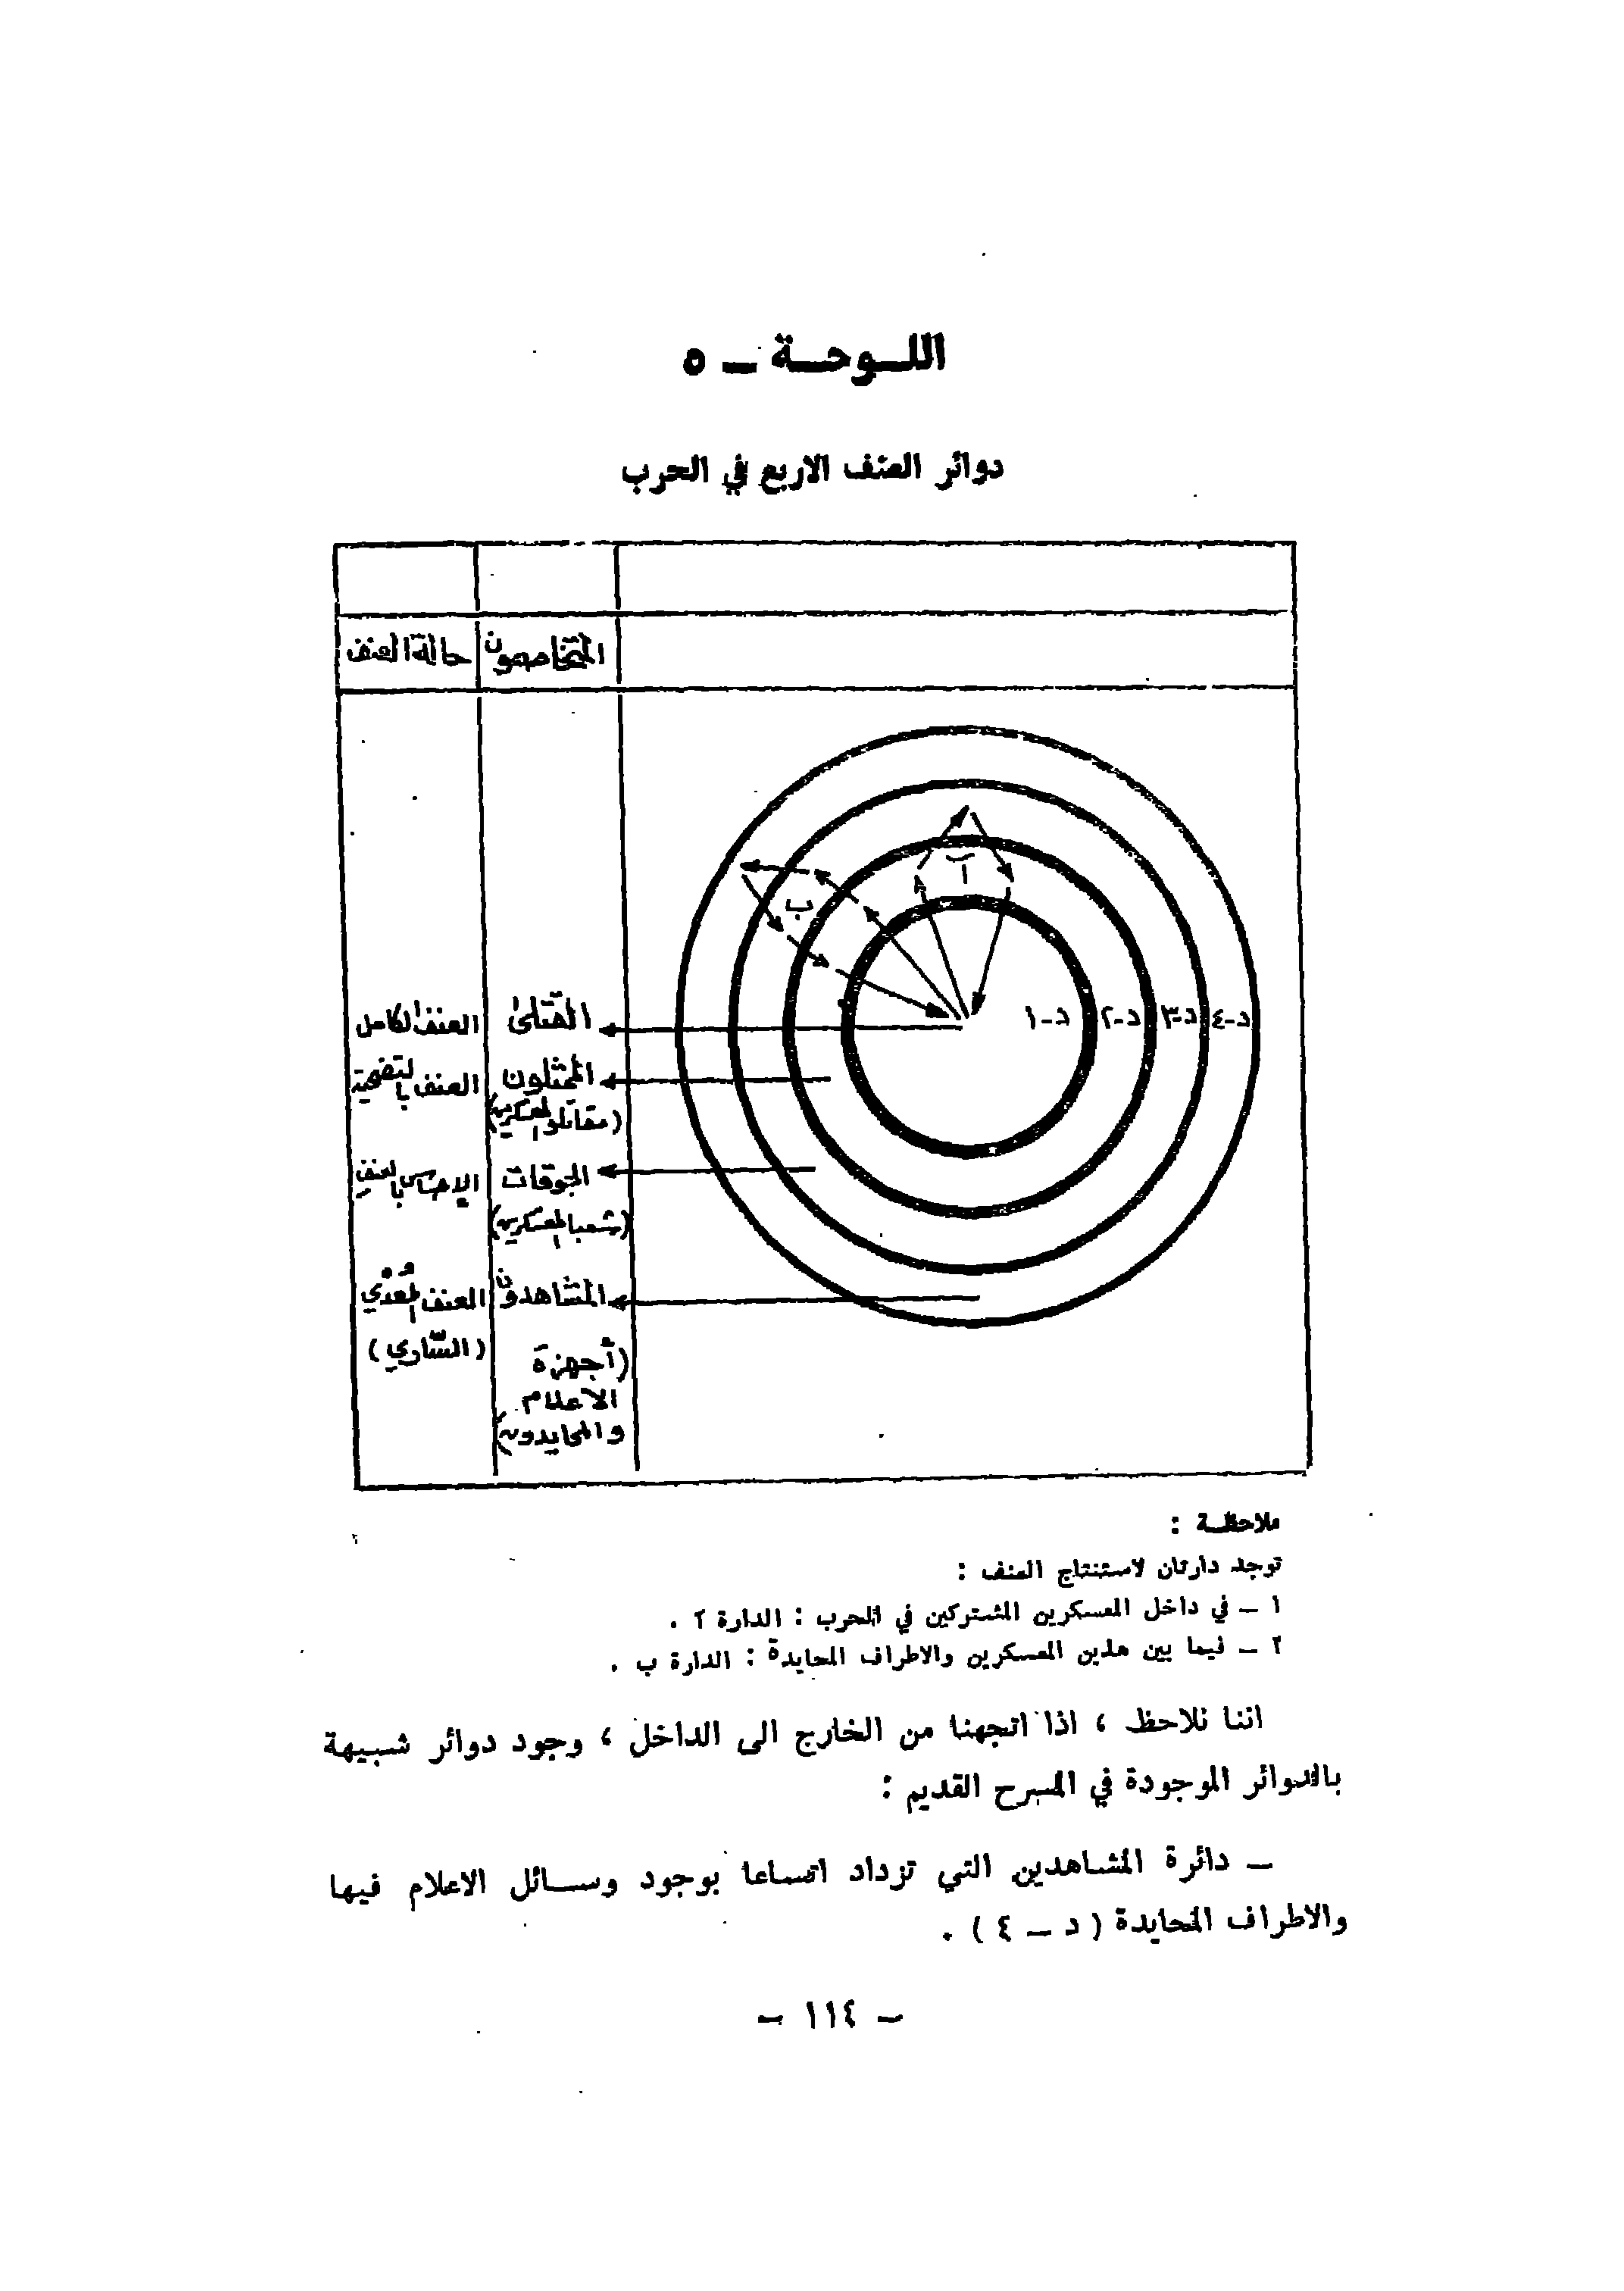 اللـوحـة ــ ٥
دوائر العنف الاربع في الحرب
المتخاصمون
حالة العنف
آ
ب
د-١
د-٢
د-٣
د-٤
القتلى
العنف الكامل
الممثلون
العنف بالتضحية
(مقاتلو المعسكرين)
الجوقات
الإحساس بالعنف
(شعبا المعسكرين)
المشاهدون
العنف المُعْدي
(السّاري)
(أجهزة
الاعلام
والمحايدون)
ملاحظـة :
توجد دارتان لاستنتاج العنف :
١ ــ في داخل المعسكرين المشتركين في الحرب : الدارة آ .
٢ ــ فيما بين هذين المعسكرين والاطراف المحايدة : الدارة ب .
اننا نلاحظ ، اذا اتجهنا من الخارج الى الداخل ، وجود دوائر شبيهة
بالدوائر الموجودة في المسرح القديم :
ــ دائرة المشاهدين التي تزداد اتساعا بوجود وسـائل الاعلام فيها
والاطراف المحايدة ( د ــ ٤ ) .
ــ ١١٤ ــ